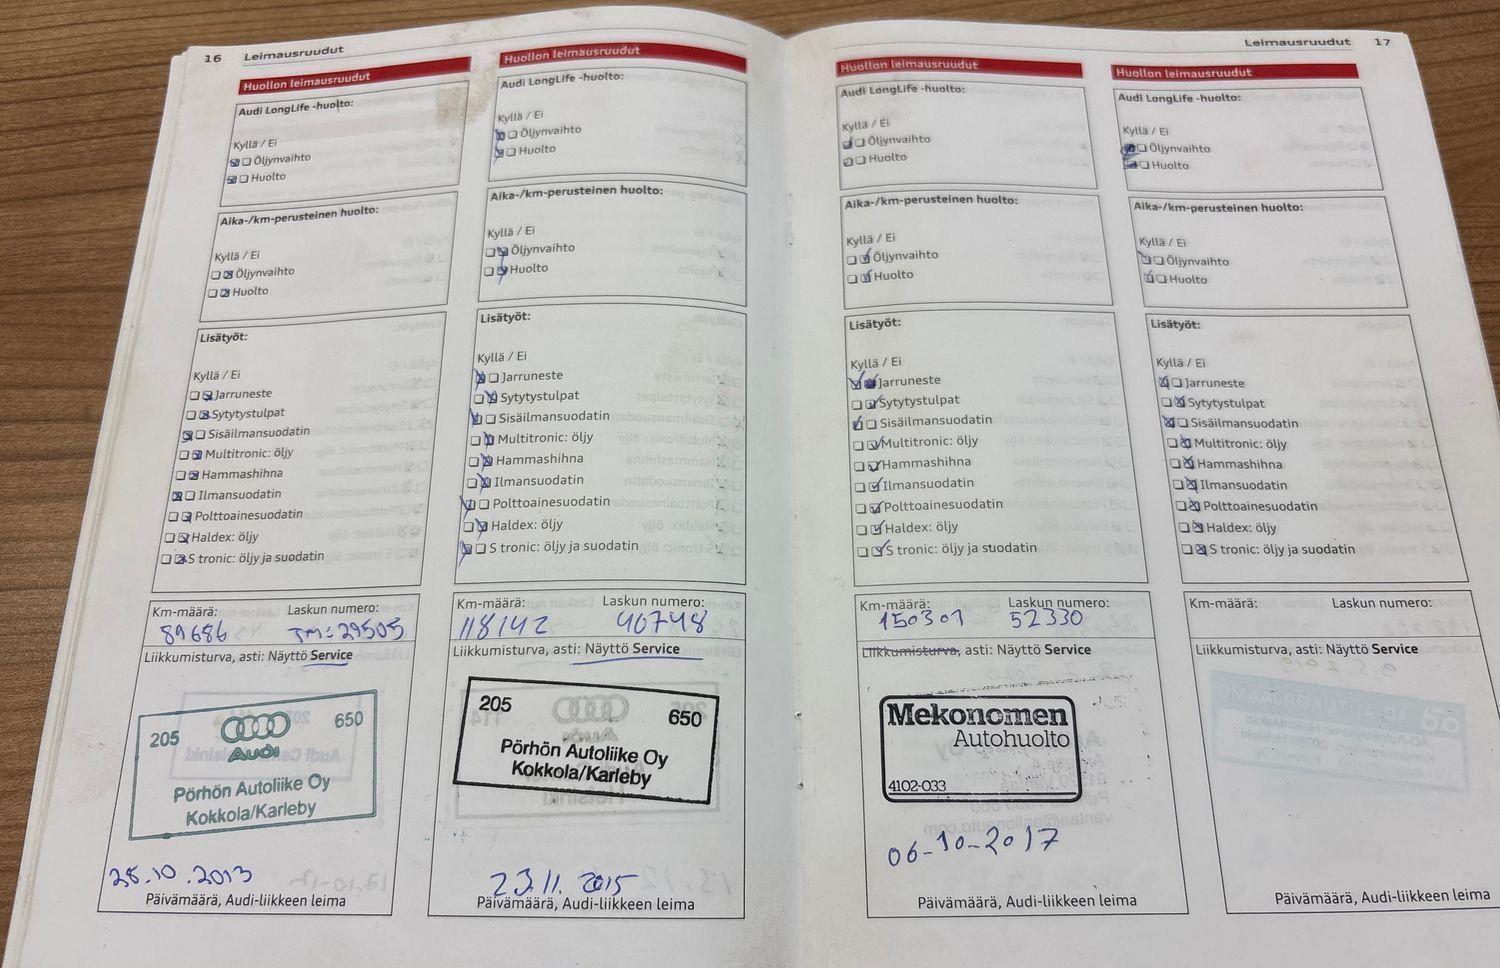 16 Leimausruudut
Huollon leimausruudut
Audi LongLife -huolto:
Kyllä / Ei
Öljynvaihto
Huolto
Aika-/km-perusteinen huolto:
Kyllä / Ei
Öljynvaihto
Huolto
Lisätyöt:
Kyllä / Ei
Jarruneste
Sytytystulpat
Sisäilmansuodatin
Multitronic: öljy
Hammashihna
Ilmansuodatin
Polttoainesuodatin
Haldex: öljy
S tronic: öljy ja suodatin
Km-määrä: Laskun numero:
89686 TM: 29505
Liikkumisturva, asti: Näyttö Service
205 650
Audi
Pörhön Autoliike Oy
Kokkola/Karleby
28.10.2013
Päivämäärä, Audi-liikkeen leima
Huollon leimausruudut
Audi LongLife -huolto:
Kyllä / Ei
Öljynvaihto
Huolto
Aika-/km-perusteinen huolto:
Kyllä / Ei
Öljynvaihto
Huolto
Lisätyöt:
Kyllä / Ei
Jarruneste
Sytytystulpat
Sisäilmansuodatin
Multitronic: öljy
Hammashihna
Ilmansuodatin
Polttoainesuodatin
Haldex: öljy
S tronic: öljy ja suodatin
Km-määrä: Laskun numero:
118142 40748
Liikkumisturva, asti: Näyttö Service
205 650
Pörhön Autoliike Oy
Kokkola/Karleby
23.11. 2015
Päivämäärä, Audi-liikkeen leima
Leimausruudut 17
Huollon leimausruudut
Audi LongLife -huolto:
Kyllä / Ei
Öljynvaihto
Huolto
Aika-/km-perusteinen huolto:
Kyllä / Ei
Öljynvaihto
Huolto
Lisätyöt:
Kyllä / Ei
Jarruneste
Sytytystulpat
Sisäilmansuodatin
Multitronic: öljy
Hammashihna
Ilmansuodatin
Polttoainesuodatin
Haldex: öljy
S tronic: öljy ja suodatin
Km-määrä: Laskun numero:
150301 52330
Liikkumisturva, asti: Näyttö Service
Mekonomen
Autohuolto
4102-033
06-10-2017
Päivämäärä, Audi-liikkeen leima
Huollon leimausruudut
Audi LongLife -huolto:
Kyllä / Ei
Öljynvaihto
Huolto
Aika-/km-perusteinen huolto:
Kyllä / Ei
Öljynvaihto
Huolto
Lisätyöt:
Kyllä / Ei
Jarruneste
Sytytystulpat
Sisäilmansuodatin
Multitronic: öljy
Hammashihna
Ilmansuodatin
Polttoainesuodatin
Haldex: öljy
S tronic: öljy ja suodatin
Km-määrä: Laskun numero:
Liikkumisturva, asti: Näyttö Service
Päivämäärä, Audi-liikkeen leima